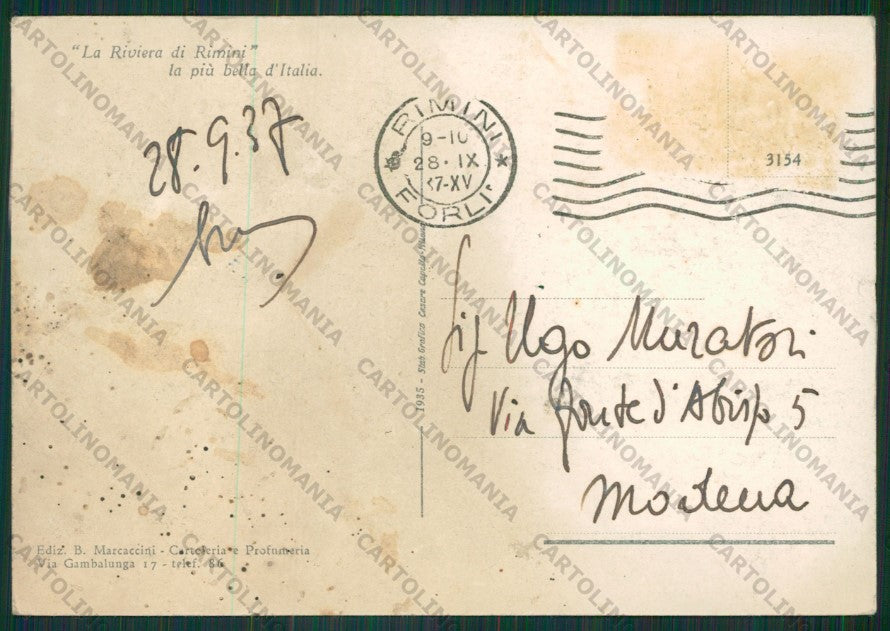 "La Riviera di Rimini"
la più bella d'Italia.
28.9.37
RIMINI
9-10
28·IX
37-XV
FORLI'
3154
1935 - Stab. Grafico Cesare
Sig Ugo Muratori
Via Fonte d'Abisso 5
Modena
Ediz. B. Marcaccini - Cartoleria e Profumeria
Via Gambalunga 17 - telef. 86
CARTOLINOMANIA